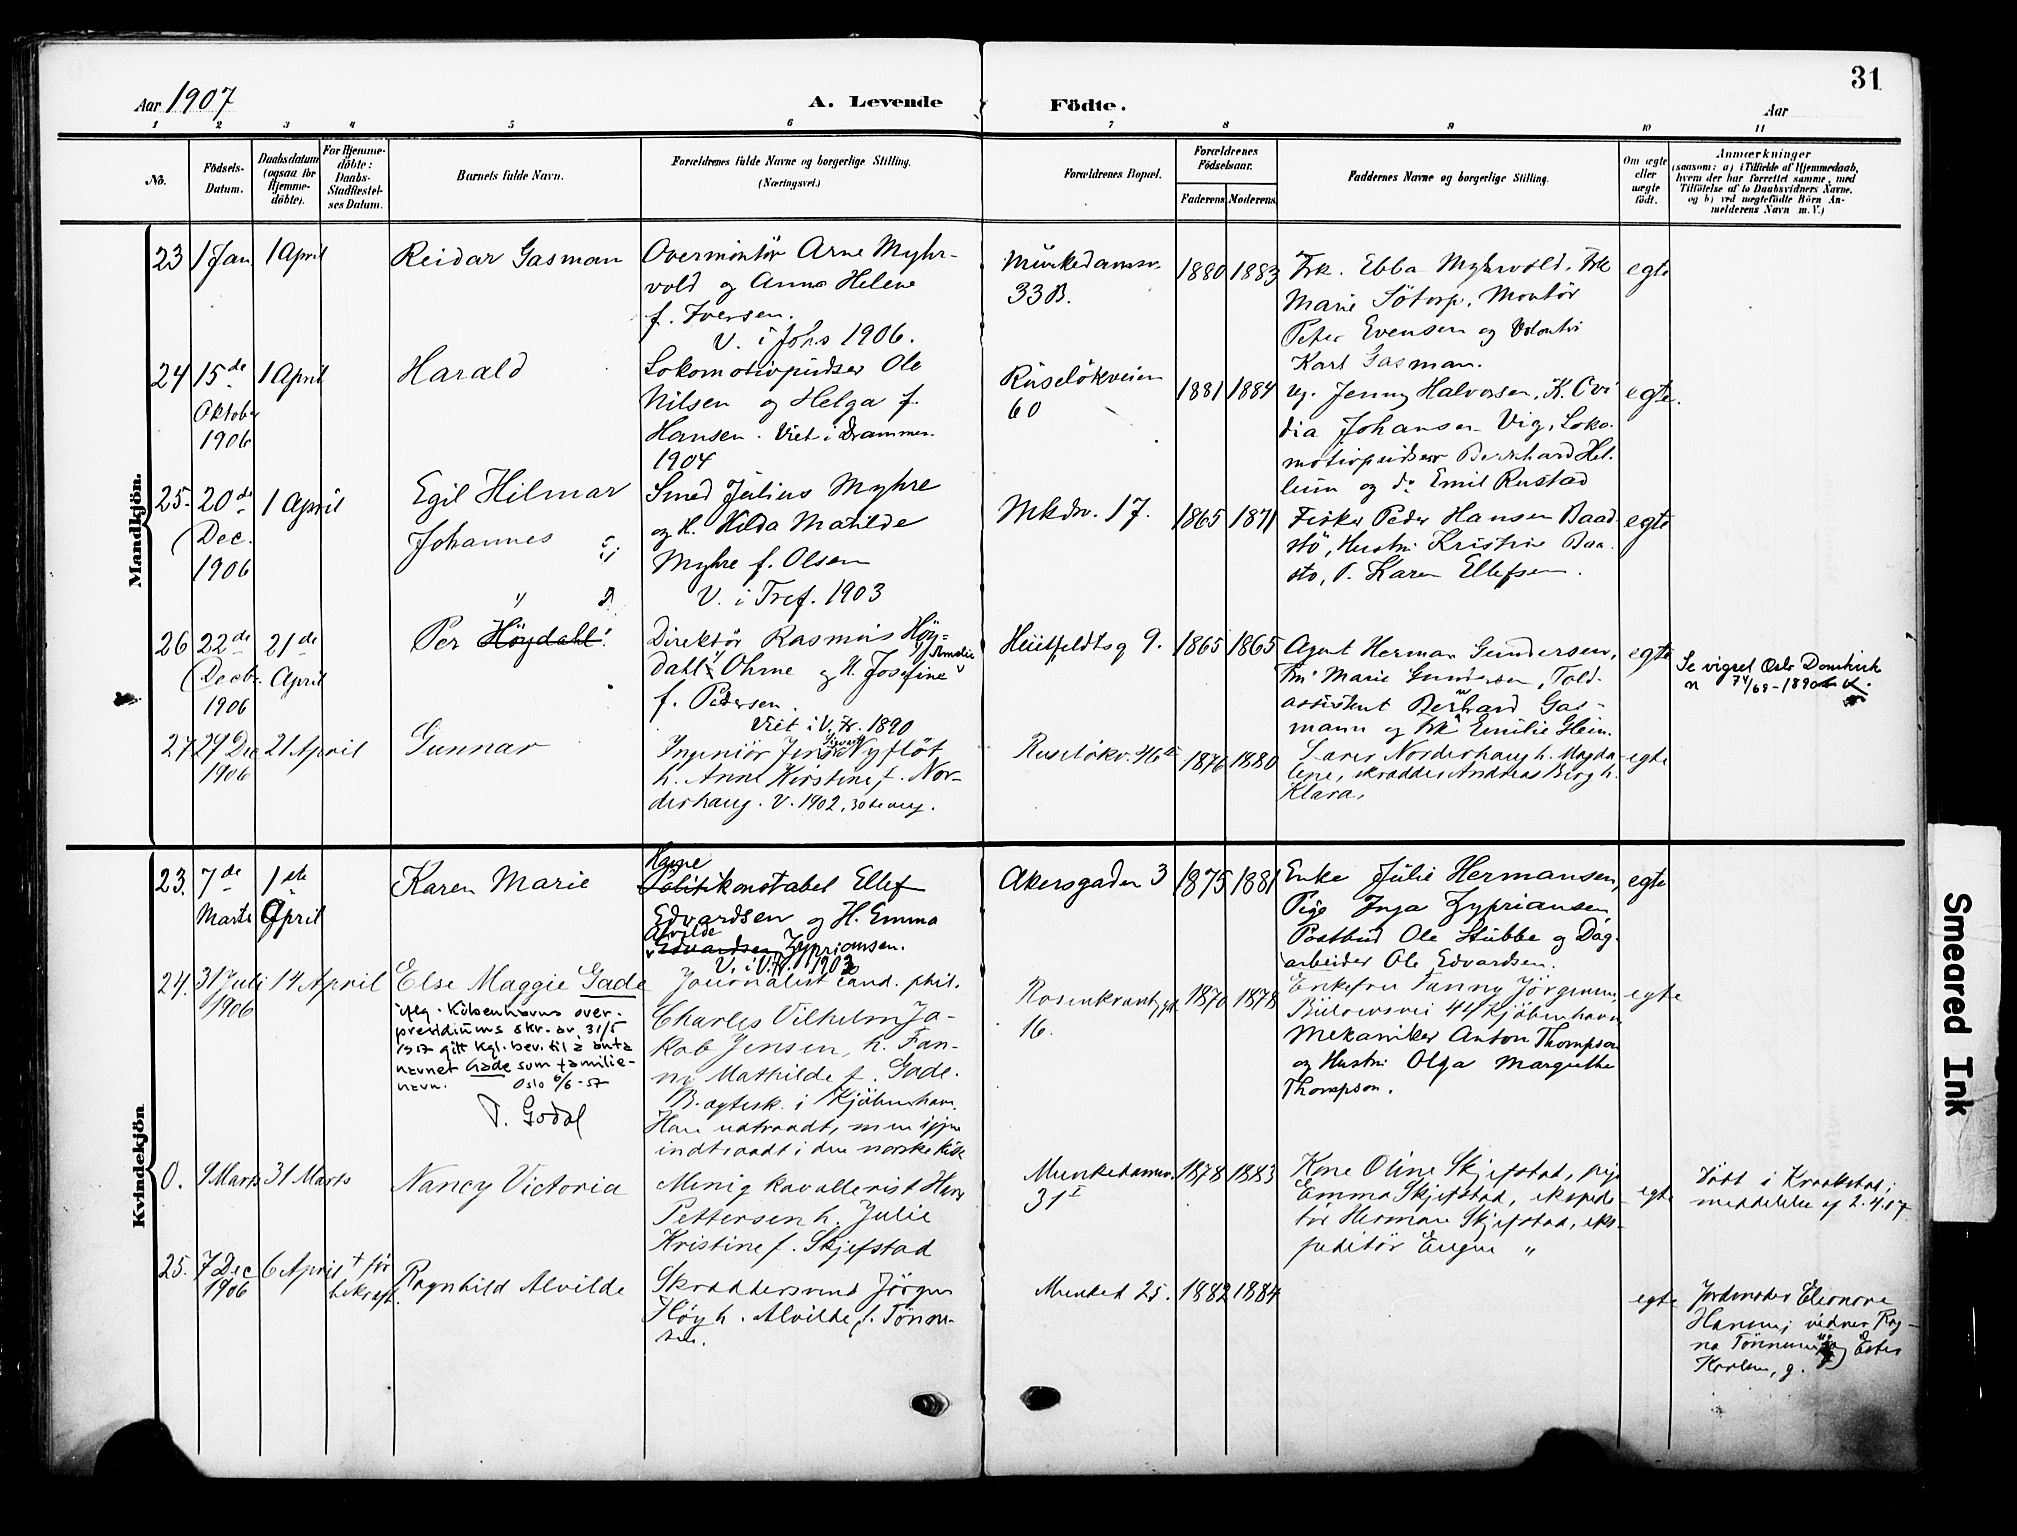 31
Aar 1907
A. Levende
Födte.
Aar
1 2 3 4 5 6 7 8 9 10 11
No.
Födsels-
Datum.
Daabsdatum
(ogsaa for
Hjemme-
döbte).
For Hjemme-
döbte:
Daabs-
Stadfæstel-
ses Datum.
Barnets fulde Navn.
Forældrenes fulde Navne og borgerlige Stilling.
(Næringsvei.)
Forældrenes Bopæl.
Forældrenes
Födselsaar.
Faderens Moderens
Faddernes Navne og borgerlige Stilling.
Om ægte
eller
uægte
födt.
Anmærkninger
(saasom: a) i Tilfælde af Hjemmedaab,
hvem der har forrettet samme, med
Tilföielse af to Daabsvidners Navne.
og b) ved uægtefödte Börn An-
melderens Navn m. V.)
Mandkjön.
23 1 Jan 1 April
Reidar Gasman
Overmontör Arne Myhr-
vold og Anna Helene
f. Iversen.
V. i Johs 1906.
Munkedamsv.
33 B.
1880 1883
Frk. Ebba Myhrvold, Frk
Marie Sötorp, Montör
Peter Evensen og Volontör
Karl Gasman.
egte
24 15de Oktober 1906
1 April
Harald
Lokomotivpudser Ole
Nilsen og Helga f.
Hansen. Viet i Drammen
1904
Ruselökveien
60
1881 1884
Ug. Jenny Halvorsen, K. Ovi
dia Johansen Vig, Loko-
motivpudser Bernhard Hel-
leum og do Emil Rustad
egte.
25. 20de Dec. 1906
1 April
Egil Hilmar
Johannes
Smed Julius Myhre
og H. Hilda Matilde
Myhre f. Olsen
V. i Tref. 1903
Mkdv. 17.
1865 1871
Fisker Peder Hansen Baad
stö, Hustru Kristine Baa-
stö, P. Karen Ellefsen.
egte
26 22de Decbr. 1906
21de April
Per Höydahl
Direktör Rasmus Höy-
dahl Ohme og H. Josefine Amalie
f. Pedersen.
Viet i V. Fr. 1890
Huitfeldtsg 9.
1865 1865
Agent Herman Gundersen,
Fru Marie Gundersen, Told-
assistent Bernhard Gas-
mann og Frk Emilie Heim.
egte
Se vigsel Oslo Domkirk
n 74/69-1890
27 29 Dec 1906
21 April
Gunnar
Ingeniör Jens Sigvart Nyflöt
h. Anne Kirstine f. Nor-
derhaug. V. 1902,
Ruselökv. 46 II
1876 1880
Lars Norderhaug h. Magda-
lene, skrædder Andreas Berg h.
Klara.
egte
Kvindekjön
23. 7de Marts
1ste April
Karen Marie
Havne
Politikonstabel Ellef
Edvardsen og H. Emma
Alvilde
Edvardsen Zyprianssen.
V. i V. Fr. 1903
Akersgaden 3
1875 1881
Enke Julie Hermansen,
Pige Inga Zypriansen
Postbud Ole Stubbe og Dag-
arbeider Ole Edvardsen.
egte
24. 31 Juli 1906
14 April
Else Maggie Gade
iflg. Köbenhavns over-
presidiums skr. av 31/5
1957 gitt kgl. bev. til å anta
navnet Gade som familie-
navn. Oslo 6/6-57
P. Godal
Journalist cand. phil.
Charles Vilhelm Ja-
kob Jensen, h. Fan-
ny Mathilde f. Gade.
B. egtesk. i Kjöbenhavn.
Han udtraadt, men igjen
indtraadt i den norske kirke
Rosenkrantzgd.
16.
1870 1878
Enkefru Fanny Jörgensen,
Bülowsvei 44 Kjöbenhavn,
Mekaniker Anton Thompson
og Hustru Olga Margrethe
Thompson.
egte
0. 9 Marts 31 Marts
Nancy Victoria
Menig kavallerist Hans
Pettersen h. Julie
Kristine f. Skjefstad
Munkedamsv.
31 I
1878 1883
Kone Oline Skjefstad, pige
Emma Skjefstad, ekspedi-
tör Herman Skjefstad, eks-
peditör Eugen "
egte
Döbt i Kraakstad;
meddelelse af 2.4.07
25. 7 Dec 1906
6 April
† för
bekræft.
Ragnhild Alvilde
Skræddersvend Jörgen
Höy h. Alvilde f. Tönne-
sen.
Munked 25.
1882 1884
egte
Jordmoder Eleonore
Hansen; vidner Rag-
na Tönnesen og Ester
Karlsen, g.
Smeared Ink